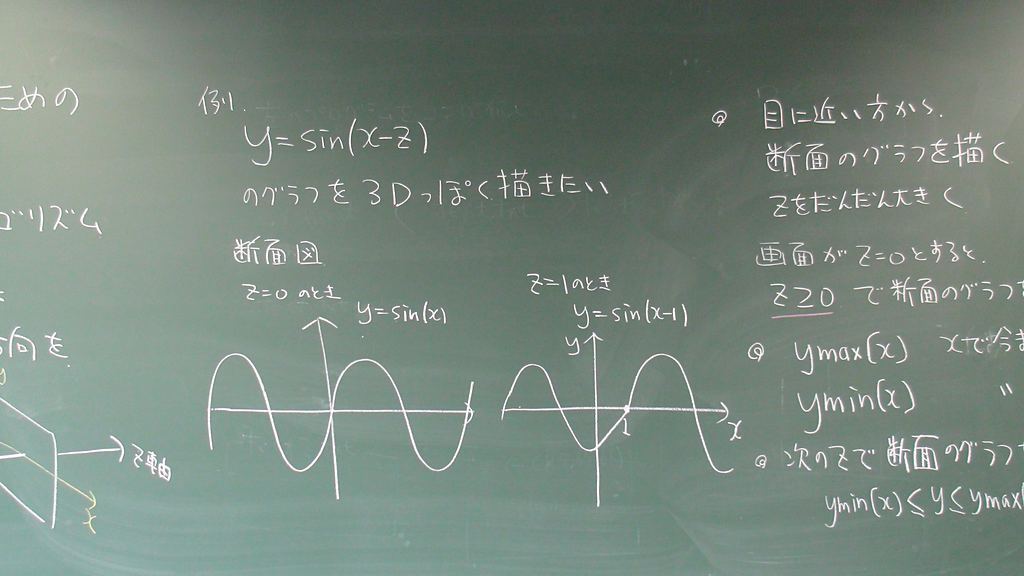 ための
ゴリズム
方向を
y
z軸
x
例1.
y=sin(x-z)
のグラフを3Dっぽく描きたい
断面図
z=0 のとき
y=sin(x)
z=1のとき
y=sin(x-1)
y
1
x
◎ 目に近い方から、
断面のグラフを描く
zをだんだん大きく
画面がz=0とすると、
z≥0 で断面のグラフを
◎ ymax(x) xで今ま
ymin(x) 〃
◎ 次のzで断面のグラフ
ymin(x)≤y≤ymax(